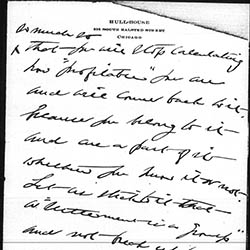 HULL-HOUSE
CHICAGO
as much as
that you will stop calculating
how "profitable" you are
and will come back
because you belong to it
and are a part of it
whether you know it or not.
Let us stick to it that
a "Settlement is a
and not